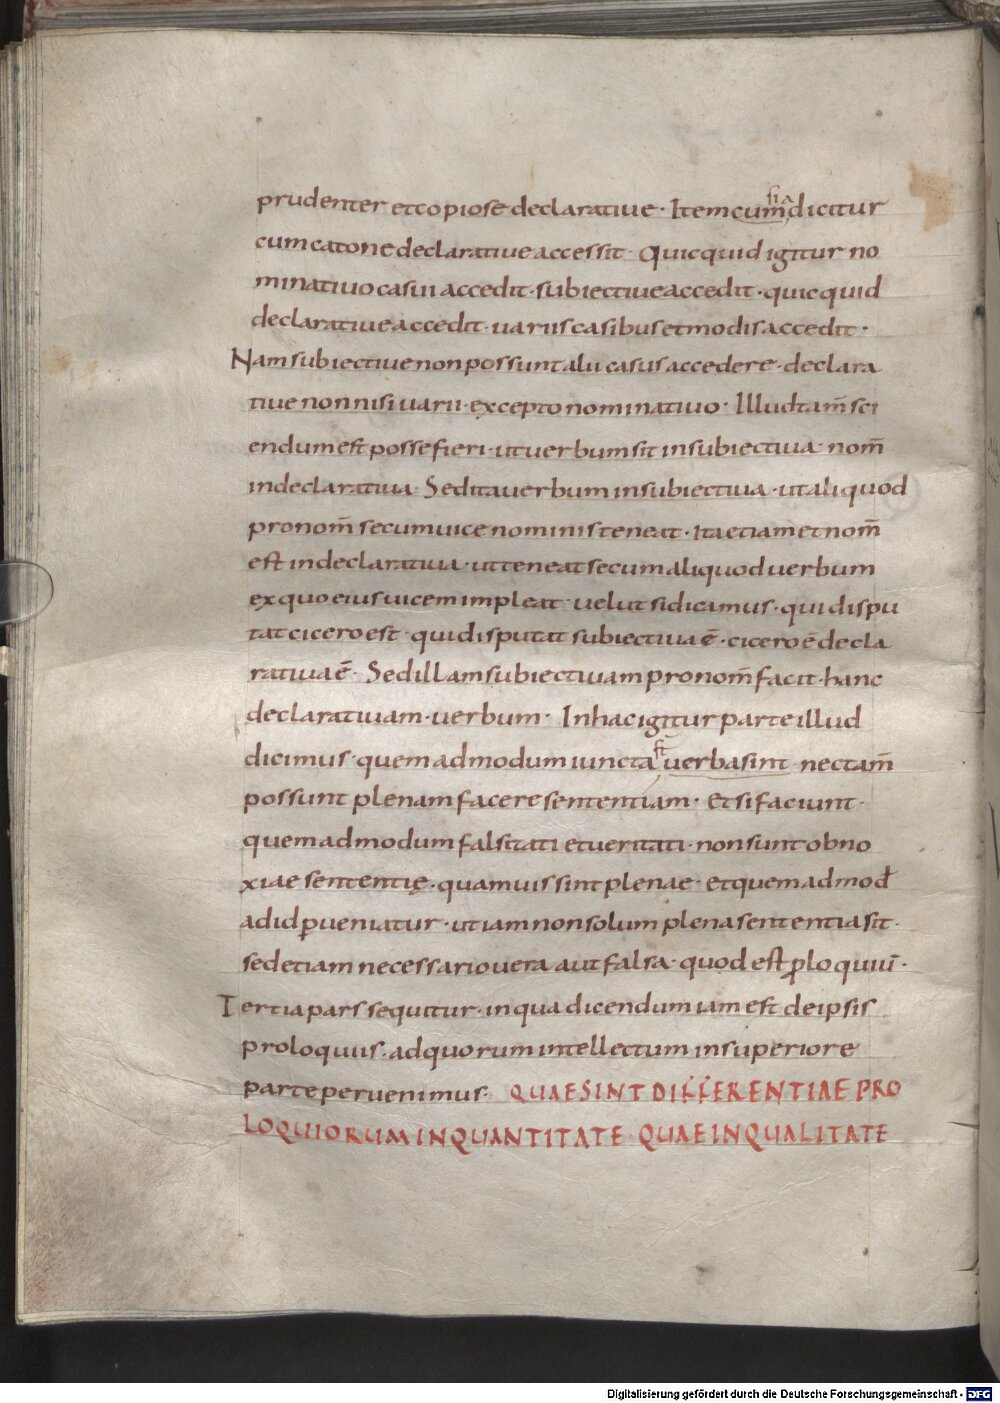 prudenter et copiose declarative · Item cum dicitur
cum catone declarative accessit · Quicquid igitur no
minativo casui accedit · subiective accedit · quicquid
declarative accedit · variis casibus et modis accedit ·
Nam subiective non possunt alii casus accedere · declara
tive non nisi varii · excepto nominativo · Illud tam̄ sci
endum est posse fieri · ut verbum sit in subiectiva · nom̄
in declarativa · Sed ita verbum in subiectiva · ut aliquod
pronom̄ secum vice nominis teneat · ita etiam et nom̄
est in declarativa · ut teneat secum aliquod verbum
ex quo eius vicem impleat · velut si dicamus · qui dispu
tat cicero est · qui disputat subiectiva ē · cicero ē decla
rativa ē · Sed illam subiectivam pronom̄ facit · hanc
declarativam · verbum · In hac igitur parte illud
dicimus · quemadmodum iuncta verba sint nec tam̄
possunt plenam facere sententiam · et si faciunt ·
quemadmodum falsitati et veritati · non sunt obno
xiae sententię · quamvis sint plenae · et quemadmod̄
ad id ꝑveniatur · ut iam non solum plena sententia sit ·
sed etiam necessario vera aut falsa · quod est ꝓloquiū ·
Tertia pars sequitur · in qua dicendum iam est de ipsis
proloquiis · ad quorum intellectum in superiore
parte pervenimus · QUAE SINT DIFFERENTIAE PRO
LOQUIORUM IN QUANTITATE · QUAE IN QUALITATE
Digitalisierung gefördert durch die Deutsche Forschungsgemeinschaft - DFG